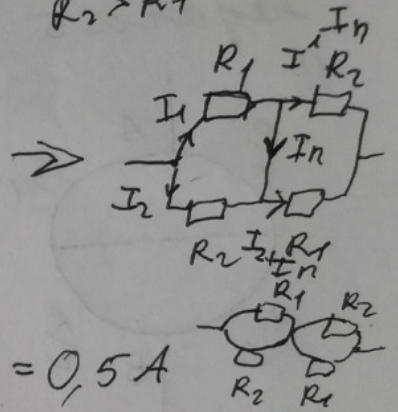 R₂ > R₁
I₁ - Iₙ
R₁ R₂
I₁ Iₙ
I₂
R₂ I₂+Iₙ R₁
R₁ R₂
= 0,5 A
R₂ R₁